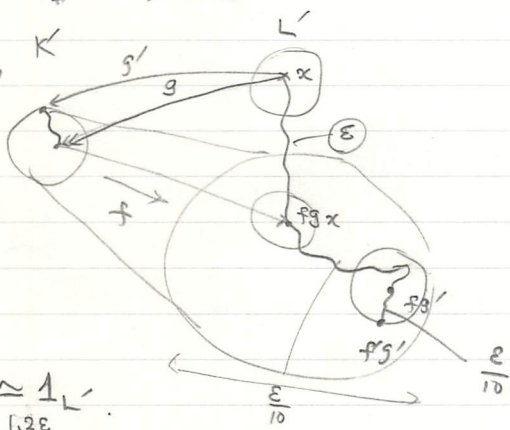 L'
K'
g'
x
g
ε
f
fgx
fg'
f'g'
ε/10
ε/10
≃ 1_L'
[1,2ε